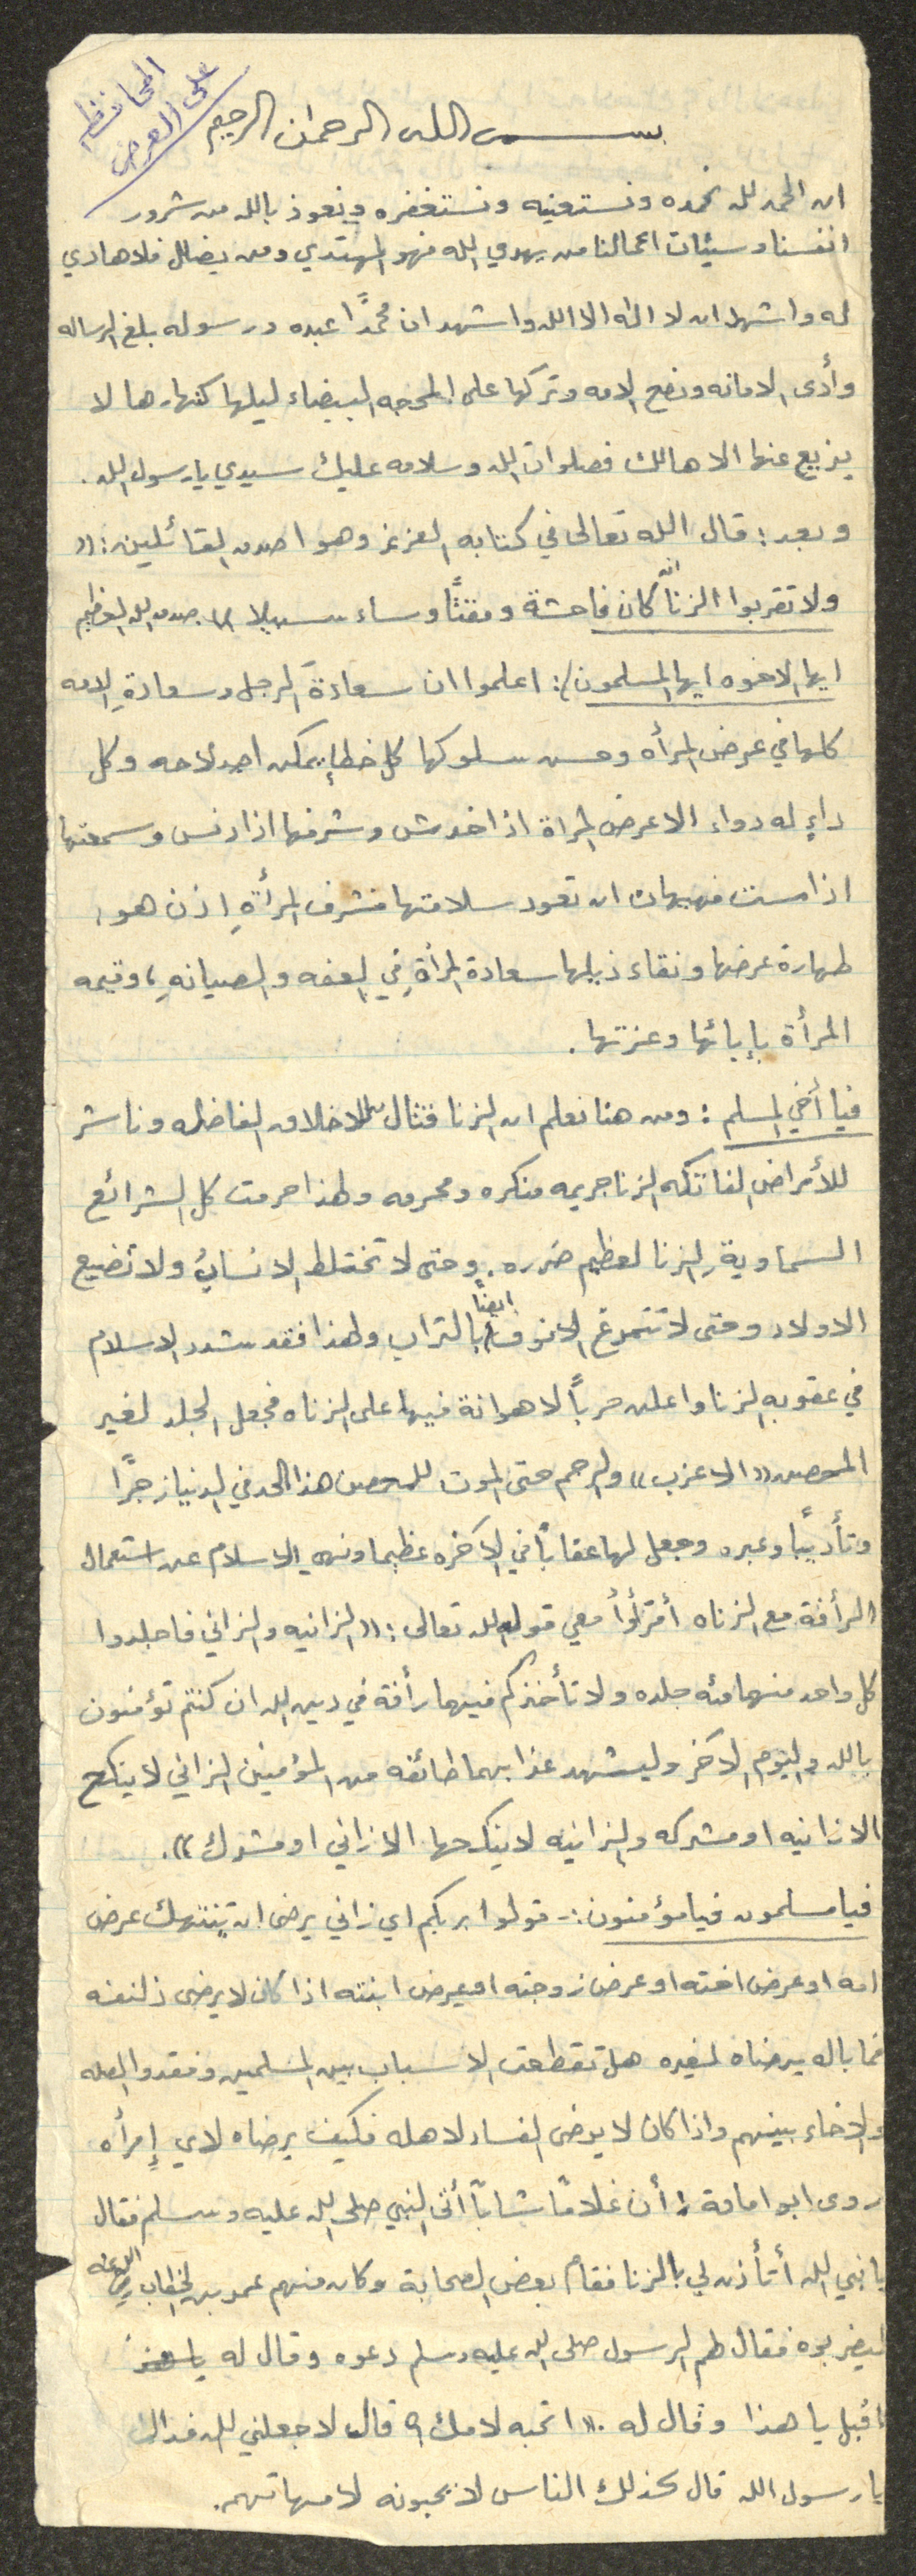 المحافظه
على العرض
بسم الله الرحمان الرحيم
ان الحمد لله نحمده ونستعينه ونستغفره ونعوذ بالله من شرور
انفسنا وسيئات اعمالنا من يهدي الله فهو المهتدي ومن يضلل فلا هادي
له واشهد ان لا اله الا الله واشهد ان محمدًا عبده ورسوله بلغ الرساله
وأدى الامانه ونصح الامه وتركها على المحجه البيضاء ليلها كنهارها لا
يزيع عنها الا هالك فصلوات الله وسلامه عليك سيدي يا رسول الله.
وبعد: قال الله تعالى في كتابه العزيز وهو اصدق القائلين: ((
ولا تقربوا الزنا انه كان فاحشة ومقتًا وساء سبيلا)) صدق الله العظيم
ايها الاخوه ايها المسلمون/: اعلموا ان سعادةَ الرجل وسعادةِ الامه
كلها في عرض المرأه وحسن سلوكها كل خطإٍ يمكن اصلاحه وكل
داءٍ له دواء الا عرض المراة اذا خدش وشرفها اذا دنس وسمعتها
اذا مست فهيهات ان تعود سلامتها فشرف المرأةِ اذن هو:
طهارة عرضها ونقاء ذيلها سعادة المرأةِ في العفه والصيانهِ، وقيمه
المرأة بإبائها وعزتها.
فيا أخي المسلم: ومن هنا نعلم ان الزنا قتال للاخلاق الفاضله وناشر
للأمراض الفاتكه الزنا جريمه منكره ومحرمه ولهذا حرمت كل الشرائع
السماويةِ الزنا لعظيم ضرره. وحتى لا تختلط الانسابُ ولا تضيع
الاولاد وحتى لا تتمرغ الانوف ايضًا بالتراب ولهذا فقد شدد الاسلام
في عقوبه الزنا واعلن حربًا لا هوانة فيها على الزناه فجعل الجلد لغير
المحصن ((الاعزب)) والرجم حتى الموت للمحصن هذا الحد في الدنيا زجرًا
وتأديبًا وعبره وجعل لها عقابًا في الآخره عظيما ونهى الاسلام عن استعمال
الرأفة مع الزناه أقرئوا معي قول الله تعالى: ((الزانيه والزاني فاجلدوا
كل واحد منهما مئه جلده ولا تأخذكم فيهما رأفة في دين الله ان كنتم تؤمنون
بالله واليوم الاخر وليشهد عذابهما طائفه من المؤمنين الزاني لا ينكح
الا زانيه او مشركه والزانيه لا ينكحها الا زاني او مشرك)).
فيا مسلمون فيا مؤمنون:- قولوا بربكم اي زاني يرضى ان ينتهك عرض
امه او عرض اخته او عرض زوجته او عرض ابنته اذا كان لا يرضى ذلنفسه
فما باله يرضاه لغيره هل تقطعت الاسباب بين المسلمين وفقدوا الصله
والاخاء بينهم واذا كان لا يرضى الفساد لاهله فكيف يرضاه لاي إمرأه
روى ابو امامة: أن غلامًا شابًا أتى النبي صلى الله عليه وسلم فقال
يا نبي الله أتأذن لي بالزنا فقام بعض الصحابة وكان منهم عمر بن الخطاب رضي الله عنه
ليضربوه فقال لهم الرسول صلى الله عليه وسلم دعوه وقال له
اقبل يا هذا وقال له.((اتحبه لامك؟ قال لا جعلني الله فداك
يا رسول الله قال كذلك الناس لا يحبونه لامهاتهم.